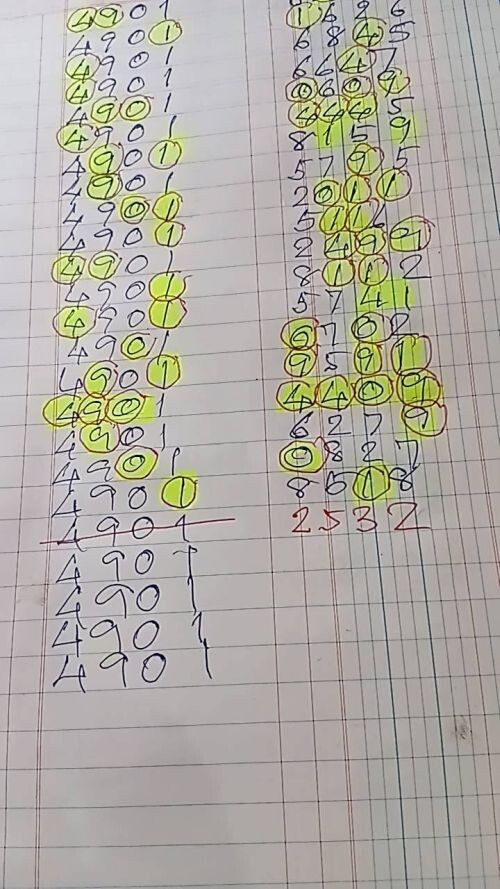 4901
4901 1626
4901 6845
4901 6647
4901 0609
4901 4445
4901 8159
4901 5795
4901 2011
4901 5116
4901 2499
4901 8112
4901 5741
4901 0702
4901 9591
4901 4409
4901 6279
4901 0827
4901 8618
4901 2532
4901
4901
4901
4901